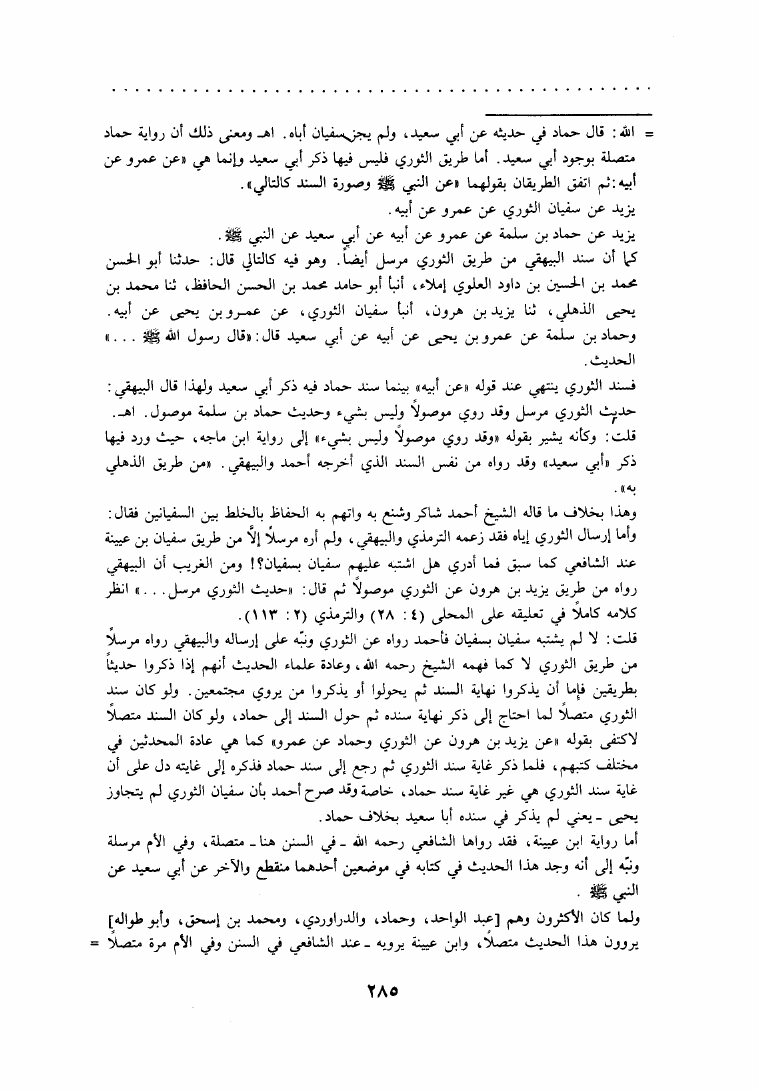 = الله: قال حماد في حديثه عن أبي سعيد، ولم يجز سفيان أباه. اهـ ومعنى ذلك أن رواية حماد
متصلة بوجود أبي سعيد. أما طريق الثوري فليس فيها ذكر أبي سعيد وإنما هي «عن عمرو عن
أبيه: ثم اتفق الطريقان بقولهما «عن النبي ﷺ وصورة السند كالتالي».
يزيد عن سفيان الثوري عن عمرو عن أبيه.
يزيد عن حماد بن سلمة عن عمرو عن أبيه عن أبي سعيد عن النبي ﷺ.
كما أن سند البيهقي من طريق الثوري مرسل أيضاً. وهو فيه كالتالي قال: حدثنا أبو الحسن
محمد بن الحسين بن داود العلوي إملاء، أنبأ أبو حامد محمد بن الحسن الحافظ، ثنا محمد بن
يحيى الذهلي، ثنا يزيد بن هرون، أنبأ سفيان الثوري، عن عمرو بن يحيى عن أبيه.
وحماد بن سلمة عن عمرو بن يحيى عن أبيه عن أبي سعيد قال: «قال رسول الله ﷺ ...»
الحديث.
فسند الثوري ينتهي عند قوله «عن أبيه» بينما سند حماد فيه ذكر أبي سعيد ولهذا قال البيهقي:
حديث الثوري مرسل وقد روي موصولاً وليس بشيء وحديث حماد بن سلمة موصول. اهـ.
قلت: وكأنه يشير بقوله «وقد روي موصولاً وليس بشيء» إلى رواية ابن ماجه، حيث ورد فيها
ذكر «أبي سعيد» وقد رواه من نفس السند الذي أخرجه أحمد والبيهقي. «من طريق الذهلي
به».
وهذا بخلاف ما قاله الشيخ أحمد شاكر وشنع به واتهم به الحفاظ بالخلط بين السفيانين فقال:
وأما إرسال الثوري إياه فقد زعمه الترمذي والبيهقي، ولم أره مرسلاً إلاَّ من طريق سفيان بن عيينة
عند الشافعي كما سبق فما أدري هل اشتبه عليهم سفيان بسفيان؟! ومن الغريب أن البيهقي
رواه من طريق يزيد بن هرون عن الثوري موصولاً ثم قال: «حديث الثوري مرسل...» انظر
كلامه كاملاً في تعليقه على المحلى (٤: ٢٨) والترمذي (٢: ١١٣).
قلت: لا لم يشتبه سفيان بسفيان فأحمد رواه عن الثوري ونبّه على إرساله والبيهقي رواه مرسلاً
من طريق الثوري لا كما فهمه الشيخ رحمه الله، وعادة علماء الحديث أنهم إذا ذكروا حديثاً
بطريقين فإما أن يذكروا نهاية السند ثم يحولوا أو يذكروا من يروي مجتمعين. ولو كان سند
الثوري متصلاً لما احتاج إلى ذكر نهاية سنده ثم حول السند إلى حماد، ولو كان السند متصلاً
لاكتفى بقوله «عن يزيد بن هرون عن الثوري وحماد عن عمرو» كما هي عادة المحدثين في
مختلف كتبهم، فلما ذكر غاية سند الثوري ثم رجع إلى سند حماد فذكره إلى غايته دل على أن
غاية سند الثوري هي غير غاية سند حماد، خاصة وقد صرح أحمد بأن سفيان الثوري لم يتجاوز
يحيى ـ يعني لم يذكر في سنده أبا سعيد بخلاف حماد.
أما رواية ابن عيينة، فقد رواها الشافعي رحمه الله ـ في السنن هنا ـ متصلة، وفي الأم مرسلة
ونبّه إلى أنه وجد هذا الحديث في كتابه في موضعين أحدهما منقطع والآخر عن أبي سعيد عن
النبي ﷺ.
ولما كان الأكثرون وهم [عبد الواحد، وحماد، والدراوردي، ومحمد بن إسحق، وأبو طواله]
يروون هذا الحديث متصلاً، وابن عيينة يرويه ـ عند الشافعي في السنن وفي الأم مرة متصلاً =
٢٨٥